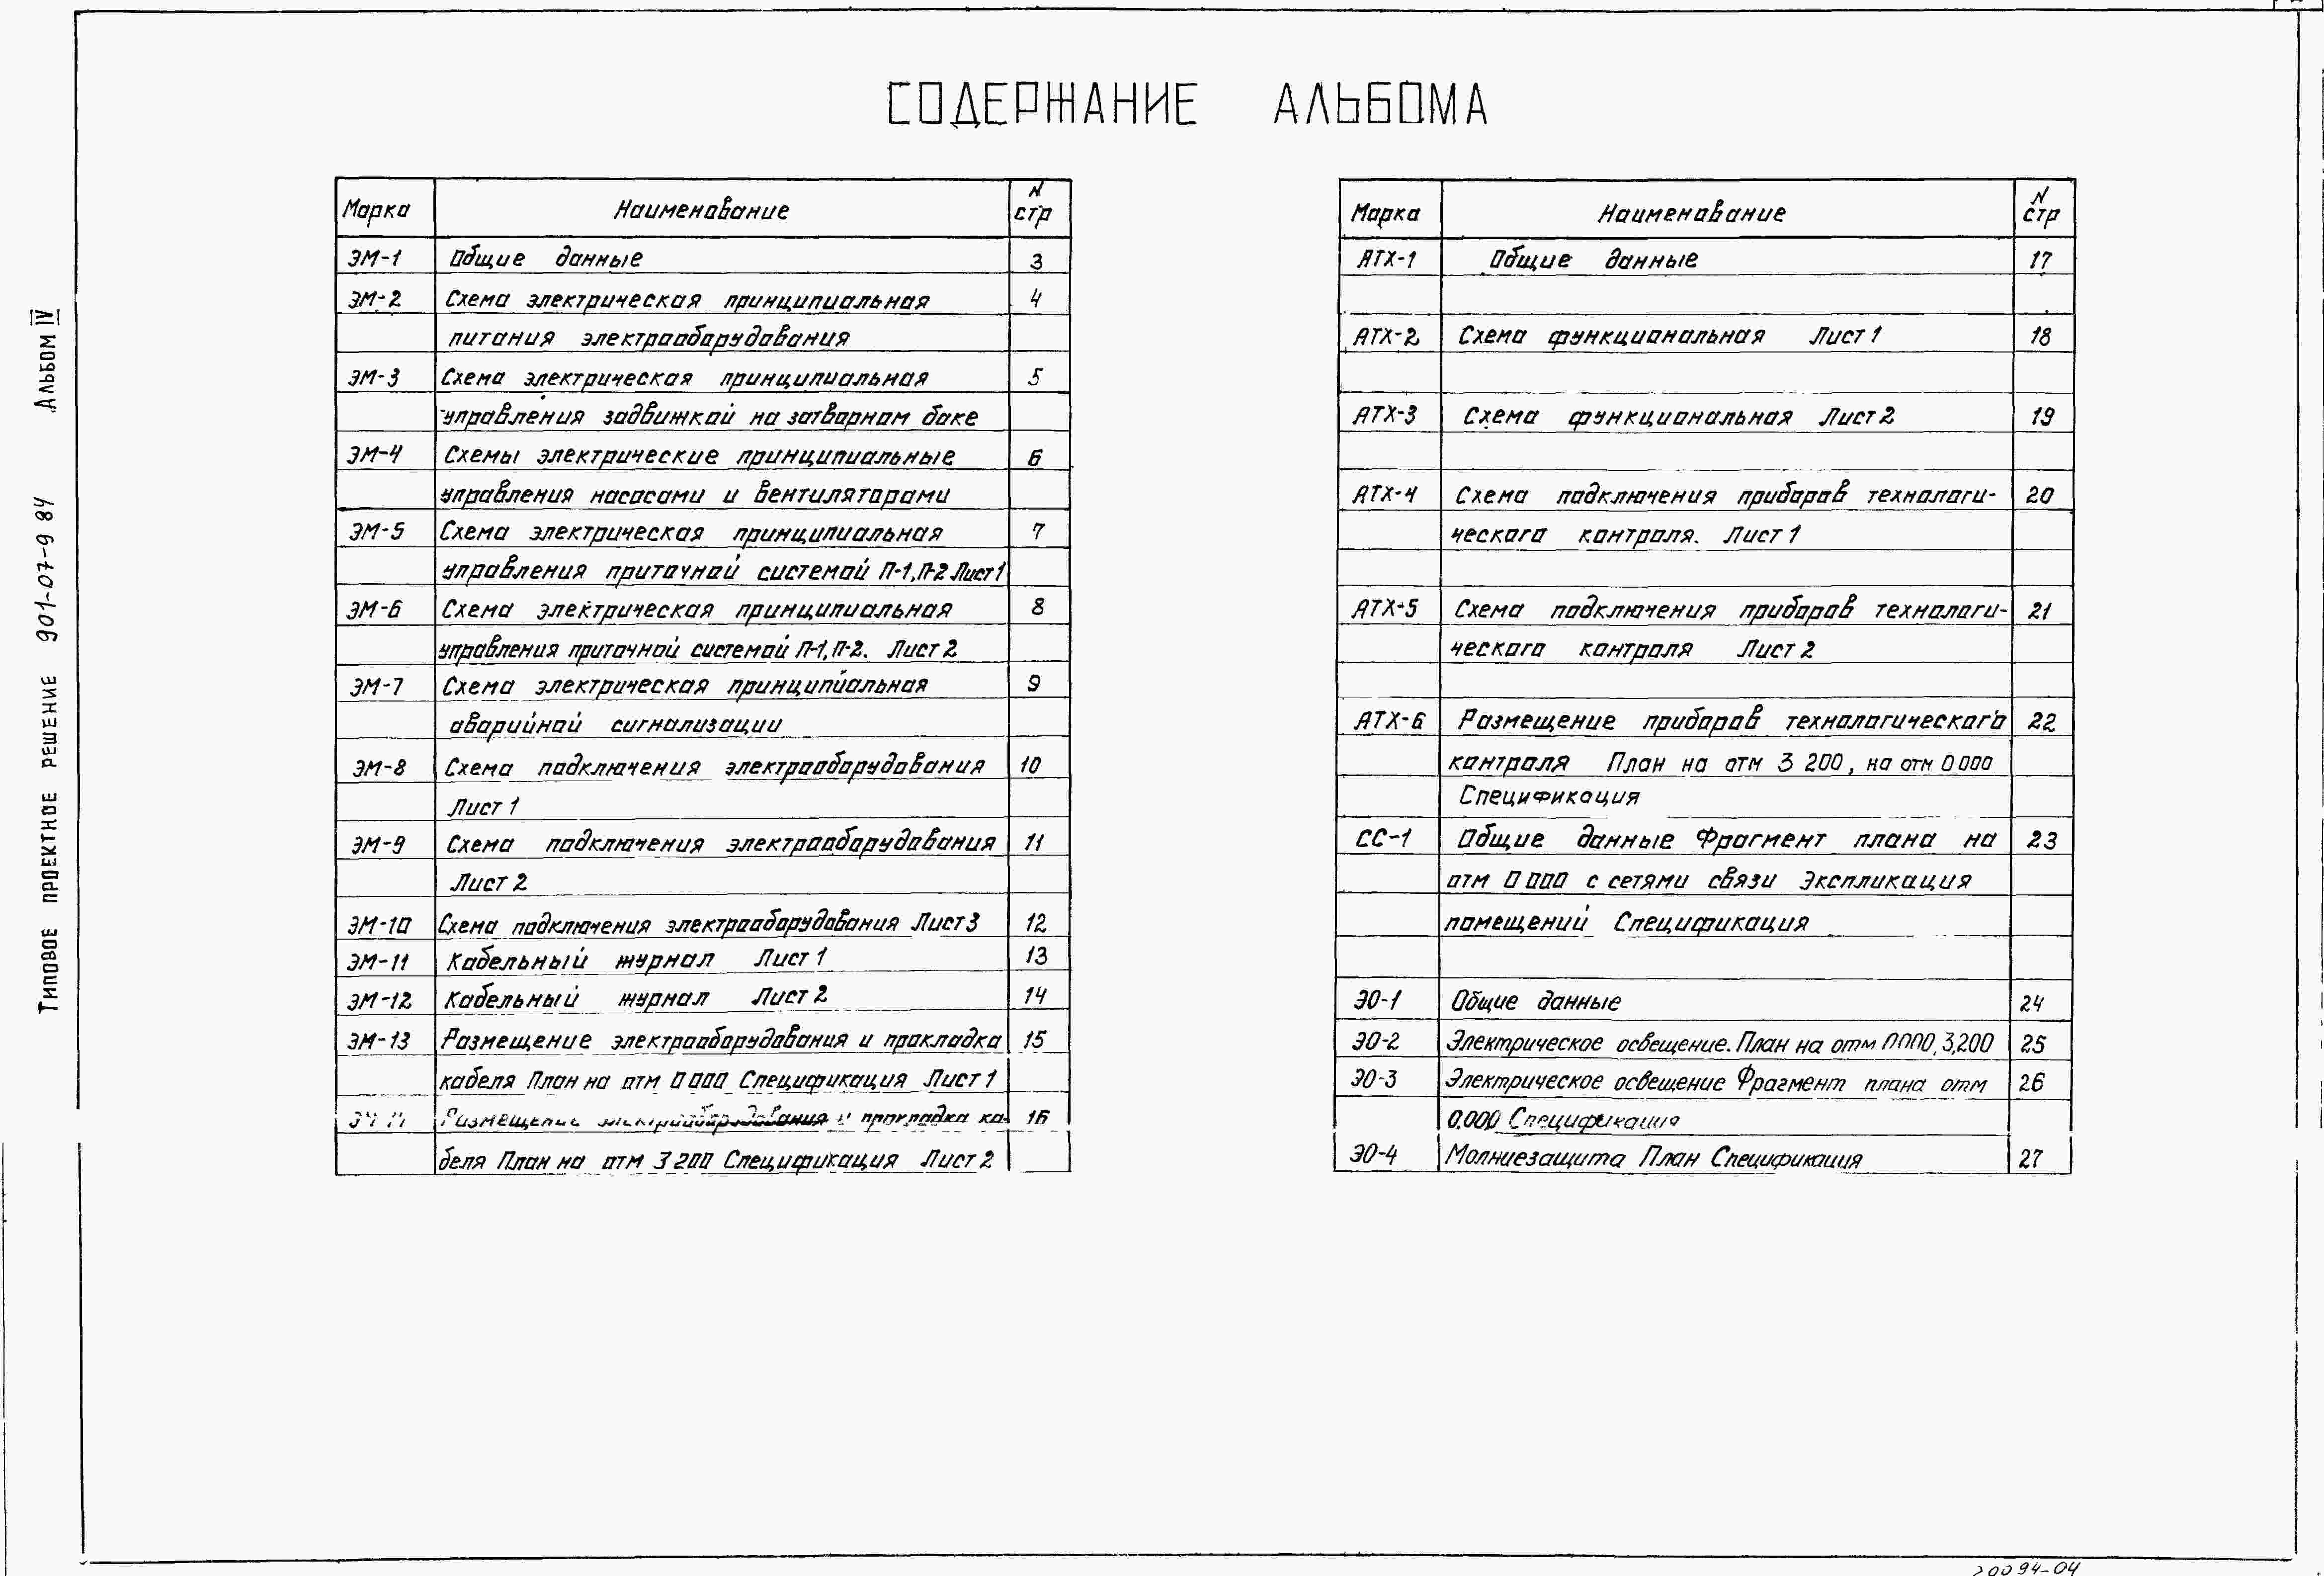 СОДЕРЖАНИЕ АЛЬБОМА
Типовое проектное решение 901-07-9 84 Альбом IV
Марка Наименование N стр
ЭМ-1 Общие данные 3
ЭМ-2 Схема электрическая принципиальная 4
питания электрооборудования
ЭМ-3 Схема электрическая принципиальная 5
управления задвижкой на затворном баке
ЭМ-4 Схемы электрические принципиальные 6
управления насосами и вентиляторами
ЭМ-5 Схема электрическая принципиальная 7
управления приточной системой П-1, П-2 Лист 1
ЭМ-6 Схема электрическая принципиальная 8
управления приточной системой П-1, П-2. Лист 2
ЭМ-7 Схема электрическая принципиальная 9
аварийной сигнализации
ЭМ-8 Схема подключения электрооборудования 10
Лист 1
ЭМ-9 Схема подключения электрооборудования 11
Лист 2
ЭМ-10 Схема подключения электрооборудования Лист 3 12
ЭМ-11 Кабельный журнал Лист 1 13
ЭМ-12 Кабельный журнал Лист 2 14
ЭМ-13 Размещение электрооборудования и прокладка 15
кабеля План на отм 0 000 Спецификация Лист 1
ЭМ-14 Размещение электрооборудования и прокладка ка- 16
беля План на отм 3 200 Спецификация Лист 2
Марка Наименование N стр
АТХ-1 Общие данные 17
АТХ-2 Схема функциональная Лист 1 18
АТХ-3 Схема функциональная Лист 2 19
АТХ-4 Схема подключения приборов технологи- 20
ческого контроля. Лист 1
АТХ-5 Схема подключения приборов технологи- 21
ческого контроля Лист 2
АТХ-6 Размещение приборов технологического 22
контроля План на отм 3 200, на отм 0 000
Спецификация
СС-1 Общие данные Фрагмент плана на 23
отм 0 000 с сетями связи Экспликация
помещений Спецификация
ЭО-1 Общие данные 24
ЭО-2 Электрическое освещение. План на отм 0000, 3,200 25
ЭО-3 Электрическое освещение Фрагмент плана отм 26
0.000 Спецификация
ЭО-4 Молниезащита План Спецификация 27
20094-04